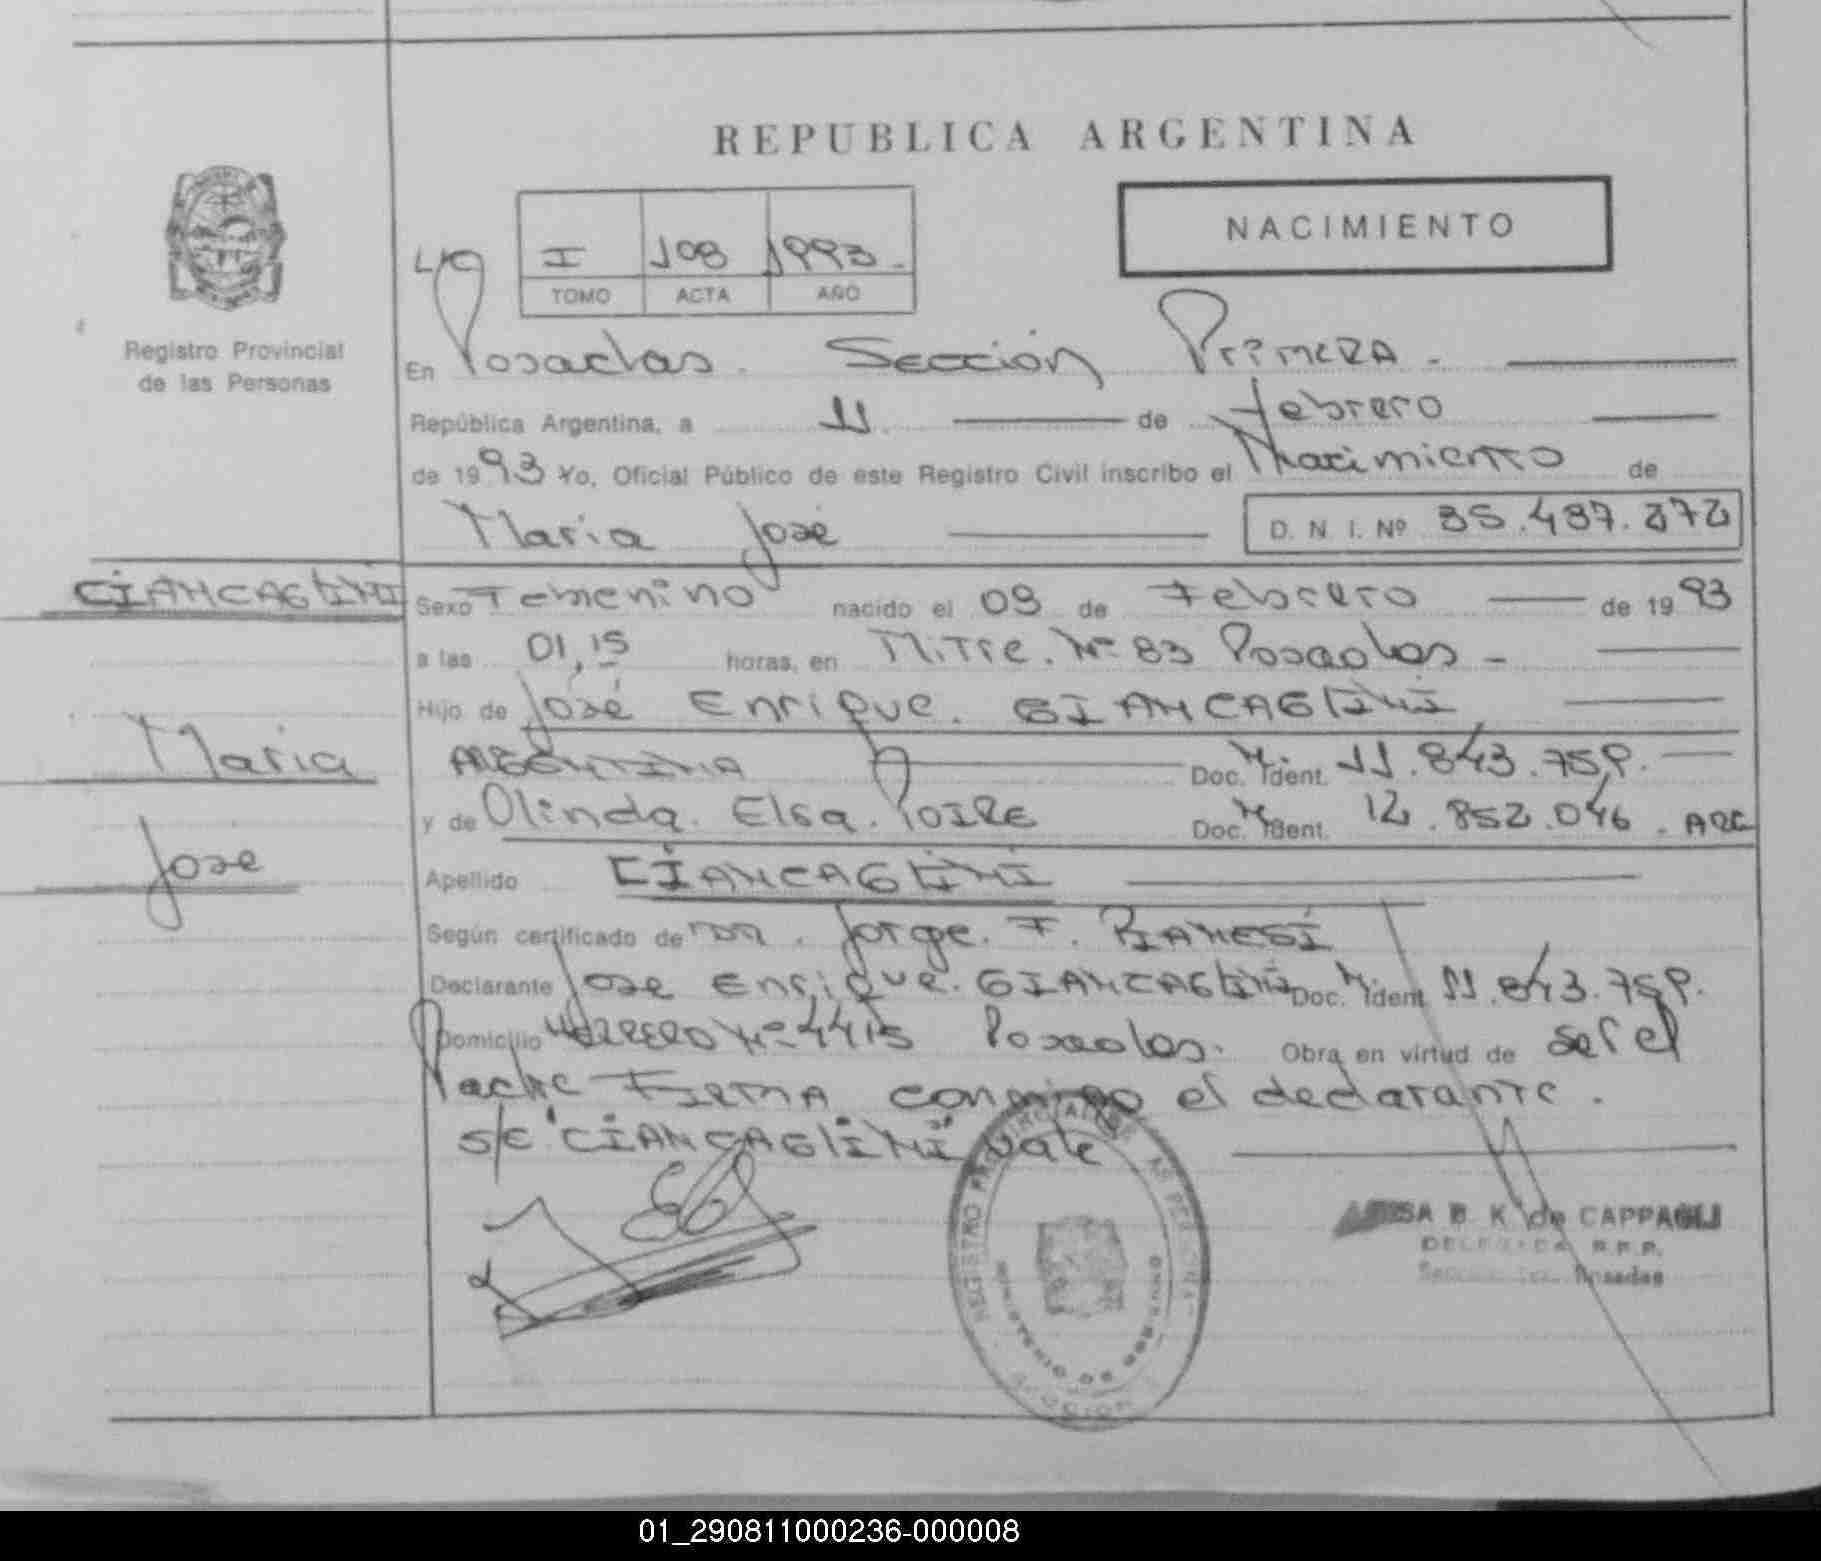 REPUBLICA ARGENTINA
NACIMIENTO
I 108 1993.
TOMO ACTA AÑO
Registro Provincial
de las Personas
En Posadas. Sección Primera -
República Argentina, a 11 de febrero
de 1993 Yo, Oficial Público de este Registro Civil inscribo el Nacimiento de
Maria José D. N. I. Nº 35.487.272
CIANCAGLINI
Sexo Femenino nacido el 09 de Febrero de 1993
a las 01,15 horas, en Mitre. Nº 83 Posadas -
Hijo de José Enrique. GIANCAGLINI
Maria
ARGENTINA Doc. M. Ident. 11.843.759.
y de Olinda. Elsa. POIRE Doc. M. Ident. 12.852.046. ARG
Jose
Apellido CIANCAGLINI
Según certificado de DR. Jorge. F. PIANESI
Declarante Jose Enrique. GIANCAGLINI Doc. M. Ident 11.843.759.
Domicilio Nº 4415 Posadas. Obra en virtud de ser el
Padre FIRMA conmigo el declarante.
S/E "CIANCAGLINI" Vale
REGISTRO
B. K. de CAPPAGLI
DELEGADA R.P.P.
Posadas
01_290811000236-000008